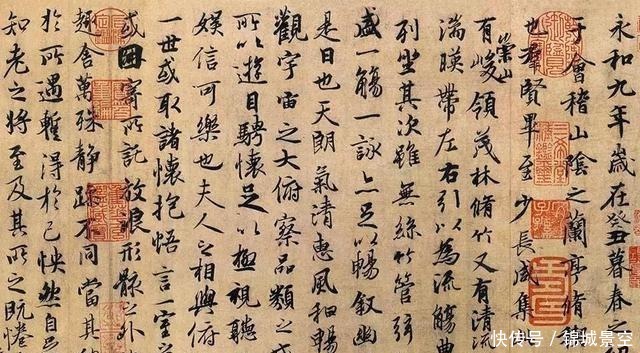 永和九年歲在癸丑暮春之
于會稽山陰之蘭亭脩
也羣賢畢至少長咸集
有崇山峻領茂林脩竹又有清流
湍暎帶左右引以為流觴曲
列坐其次雖無絲竹管弦
盛一觴一詠亦足以暢叙幽
是日也天朗氣清惠風和暢
觀宇宙之大俯察品類之
所以遊目騁懷足以極視聽
娛信可樂也夫人之相與俯
一世或取諸懷抱悟言一室之
或因寄所託放浪形骸之外
趣舍萬殊靜躁不同當其
於所遇蹔得於己怏然自
知老之將至及其所之既惓
快传号 / 锦城景空